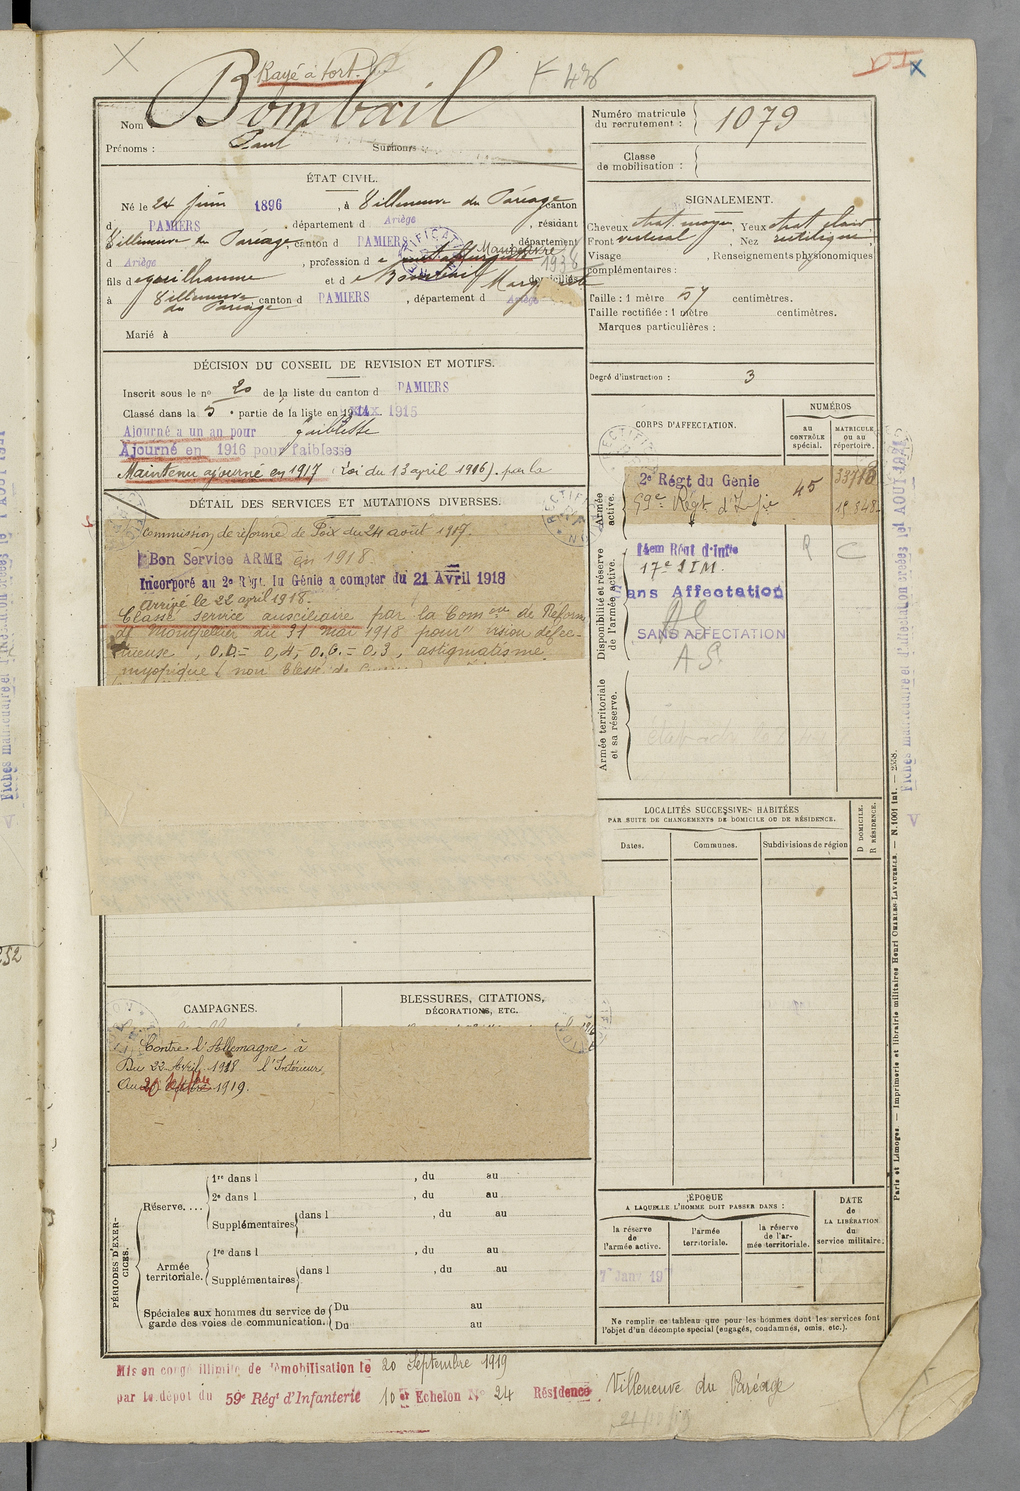 Rayé à tort
F 426
VI
Nom : Bombail
Prénoms : Paul Surnoms
Numéro matricule du recrutement : 1079
Classe de mobilisation :
ÉTAT CIVIL.
Né le 24 juin 1896, à Villeneuve du Paréage canton
d PAMIERS, département d Ariège, résidant
Villeneuve du Paréage, canton d PAMIERS département
d Ariège, profession d
fils d e guilhaume et d e domiciliés
à Villeneuve du Paréage, canton d PAMIERS, département d Ariège
Marié à
SIGNALEMENT.
Cheveux chat. moyen, Yeux chat. clair
Front vertical, Nez rectiligne
Visage , Renseignements physionomiques
complémentaires :
Taille : 1 mètre 57 centimètres.
Taille rectifiée : 1 mètre centimètres.
Marques particulières :
Degré d'instruction : 3
DÉCISION DU CONSEIL DE REVISION ET MOTIFS.
Inscrit sous le nº 20 de la liste du canton d PAMIERS
Classé dans la 5e partie de la liste en 1915
Ajourné à un an pour faiblesse
Ajourné en 1916 pour faiblesse
Maintenu ajourné en 1917 (Loi du 13 avril 1916). par la
DÉTAIL DES SERVICES ET MUTATIONS DIVERSES.
commission de réforme de Foix du 24 août 1917.
Bon Service ARMÉ en 1918
Incorporé au 2e Régt. du Génie à compter du 21 Avril 1918
arrivé le 22 avril 1918.
Classé service auxiliaire par la Com on de Réforme
de Montpellier du 31 mai 1918 pour vision défec-
tueuse, O.D.= 0,4, O.G.= 0,3, astigmatisme
myopique
CORPS D'AFFECTATION.
NUMÉROS
AU CONTRÔLE spécial.
MATRICULE OU AU répertoire.
Armée active.
2e Régt du Génie 45
59e Régt d'Infie
Disponibilité et réserve de l'armée active.
14em Régt d'Infie
17e SIM.
Sans Affectation
AS
SANS AFFECTATION
A S.
Armée territoriale et sa réserve.
LOCALITÉS SUCCESSIVES HABITÉES
PAR SUITE DE CHANGEMENTS DE DOMICILE OU DE RÉSIDENCE.
Dates.
Communes.
Subdivisions de région
D DOMICILE.
R RÉSIDENCE.
CAMPAGNES.
BLESSURES, CITATIONS, DÉCORATIONS, ETC.
Contre l'Allemagne à
Du 22 Avril 1918 l'Intérieur
Au 20 Septbre 1919.
PÉRIODES D'EXERCICES.
Réserve....
1re dans l , du au
2e dans l , du au
Supplémentaires dans l , du au
Armée territoriale.
1re dans l , du au
Supplémentaires dans l , du au
Spéciales aux hommes du service de garde des voies de communication.
Du au
Du au
ÉPOQUE
A LAQUELLE L'HOMME DOIT PASSER DANS :
la réserve de l'armée active.
l'armée territoriale.
la réserve de l'armée territoriale.
DATE de LA LIBÉRATION du service militaire.
Ne remplir ce tableau que pour les hommes dont les services font
l'objet d'un décompte spécial (engagés, condamnés, omis, etc.).
Mis en congé illimité de démobilisation le 20 Septembre 1919
par le dépôt du 59e Régt d'Infanterie 10er Echelon No 24 Résidence Villeneuve du Paréage
Paris et Limoges. — Imprimerie et librairie militaires Henri CHARLES-LAVAUZELLE. — N. 1001 int. — 2338.
252